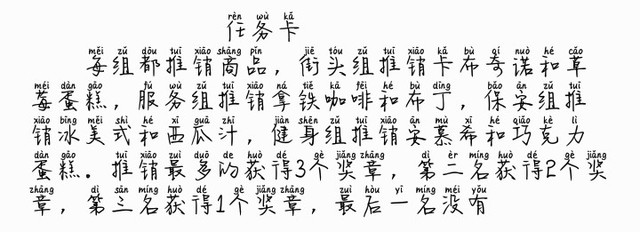 rèn wù kǎ
任务卡
měi zǔ dōu tuī xiāo shāng pǐn jiē tóu zǔ tuī xiāo kǎ bù qí nuò hé cǎo
每组都推销商品，街头组推销卡布奇诺和草
méi dàn gāo fú wù zǔ tuī xiāo ná tiě kā fēi hé bù dīng bǎo ān zǔ tuī
莓蛋糕，服务组推销拿铁咖啡和布丁，保安组推
xiāo bīng měi shì hé xī guā zhī jiàn shēn zǔ tuī xiāo ān mù xī hé qiǎo kè lì
销冰美式和西瓜汁，健身组推销安慕希和巧克力
dàn gāo tuī xiāo zuì duō de huò dé gè jiǎng zhāng dì èr míng huò dé gè jiǎng
蛋糕。推销最多的获得3个奖章，第二名获得2个奖
zhāng dì sān míng huò dé gè jiǎng zhāng zuì hòu yī míng méi yǒu
章，第三名获得1个奖章，最后一名没有